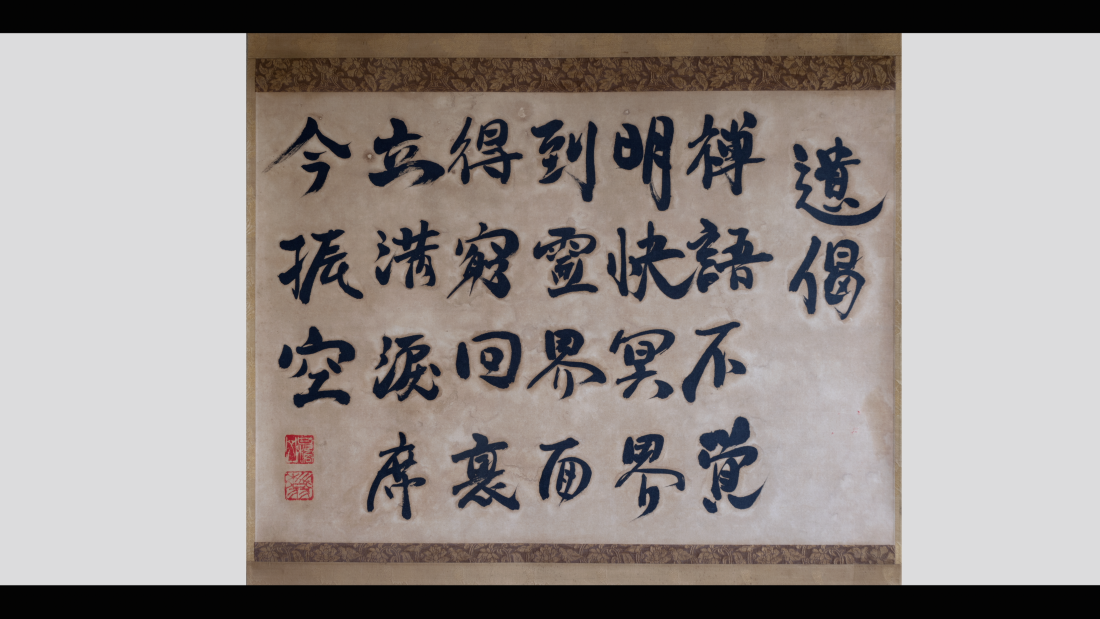 遺偈
禅語不覚
明快冥界
到靈界面
得窮回裏
立満涙席
今振空